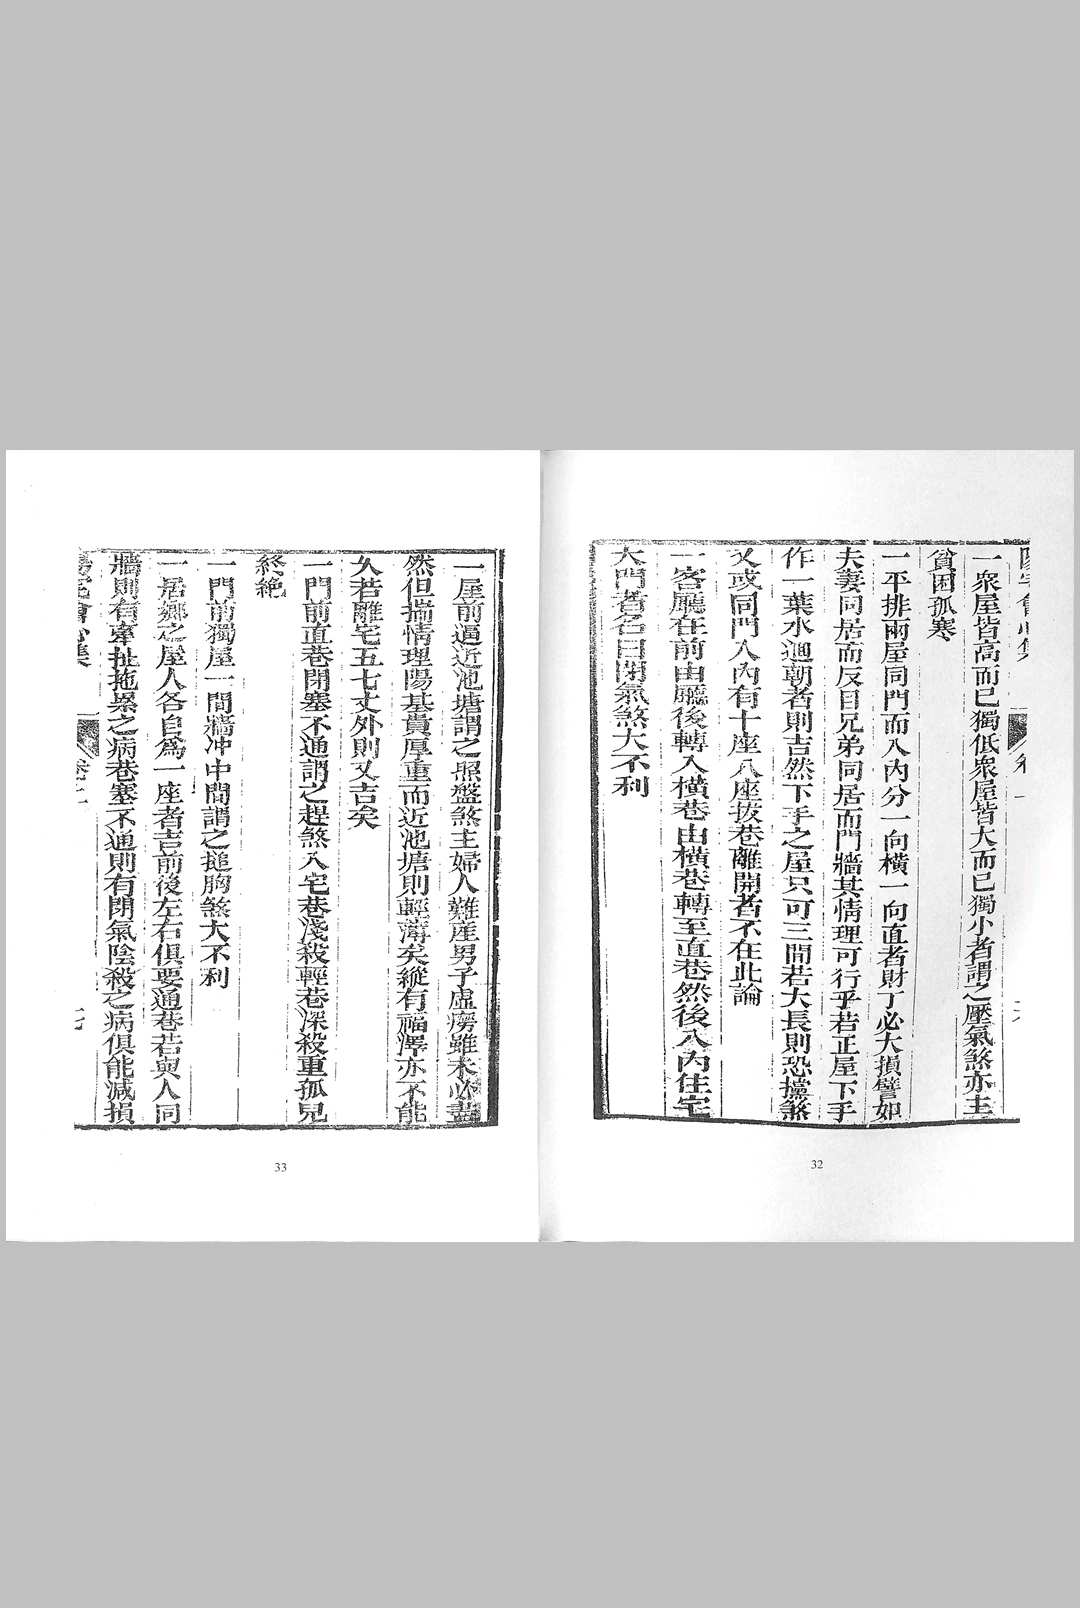 陽宅會心集 卷一 十六
一衆屋皆高而已獨低衆屋皆大而已獨小者謂之壓氣煞亦主
貧困孤寒
一平排兩屋同門而入內分一向橫一向直者財丁必大損譬如
夫妻同居而反目兄弟同居而鬥牆其情理可行乎若正屋下手
作一葉水迴朝者則吉然下手之屋只可三間若大長則恐擡煞
又或同門入內有十座八座抜巷離開者不在此論
一客廳在前由廳後轉入橫巷由橫巷轉至直巷然後入內住宅
大門者名曰閉氣煞大不利
32
一屋前逼近池塘謂之照盤煞主婦人難産男子虛癆雖未必盡
然但揣情理陽基貴厚重而近池塘則輕薄矣縱有福澤亦不能
久若離宅五七丈外則又吉矣
一門前直巷閉塞不通謂之趕煞入宅巷淺殺輕巷深殺重孤兒
終絶
一門前獨屋一間牆冲中間謂之搥胸煞大不利
一居鄉之屋人各自爲一座者吉前後左右俱要通巷若與人同
牆則有牽扯拖累之病巷塞不通則有閉氣陰殺之病俱能減損
陽宅會心集 卷上 十七
33